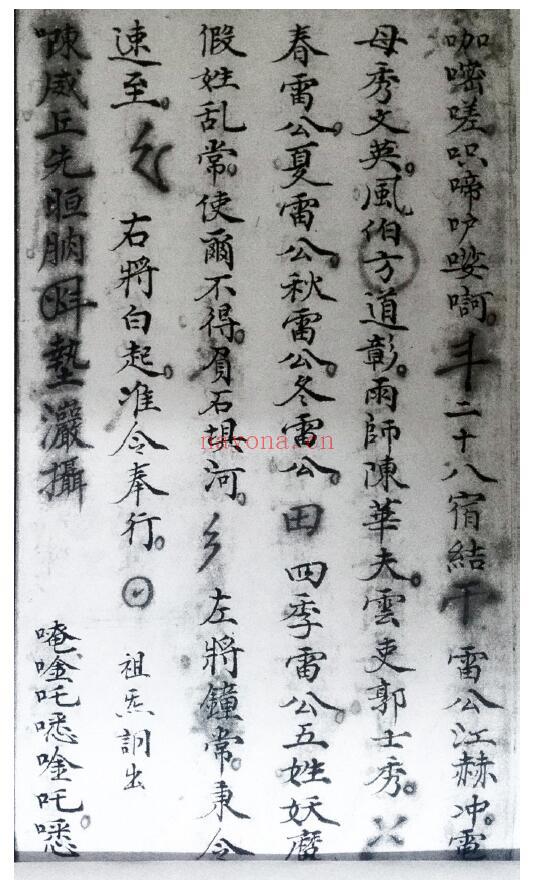 咖嘧嗟呮啼吣娑啊。斗二十八宿結干雷公江赫冲電
母秀文英。風伯方道彰。雨師陳華夫。雲吏郭士秀。
春雷公。夏雷公。秋雷公。冬雷公。田四季雷公。五姓妖魔
假姓乱常。使爾不得。負石填河。左將鐘常。秉令
速至。右將白起。准令奉行。祖炁訓出
威丘先晅朒墊灑攝唵唫吒㗭唫吒㗭
nayona.cn